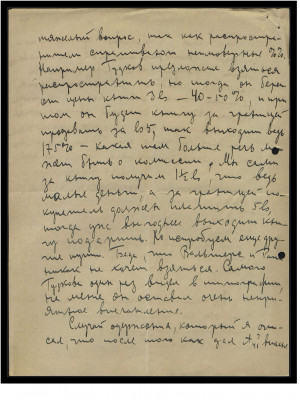 тяжелый вопрос, так как распростра-
нители стремиловски неимоверны %%.
Например Гуков предложил взяться
распространить, но тогда он бере
от цены книги 3 ls — 40-50%, и при
том он будет книгу за границей
продавать за ls 5, так выходит ведь
175% – какая тем больше речь мо-
жет быть о комиссии. Мы сами
за книгу получим 1½ ls, что ведь
малые деньги, а за границей по-
купатель должен платить 5 ls,
тогда уже выгоднее выходит кни-
гу подарить. Но испробуем еще дру-
гие пути. Беда, что Вальтерс и Рапа
никак не хочет взяться. Самого
Гукова один раз видел в типографии,
на меня он оставил очень непри-
ятное впечатление.
Случай одержания, который я опи-
сал, что после того как дал